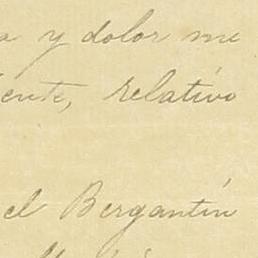 a y dolor me
ente, relativo
el Bergantín